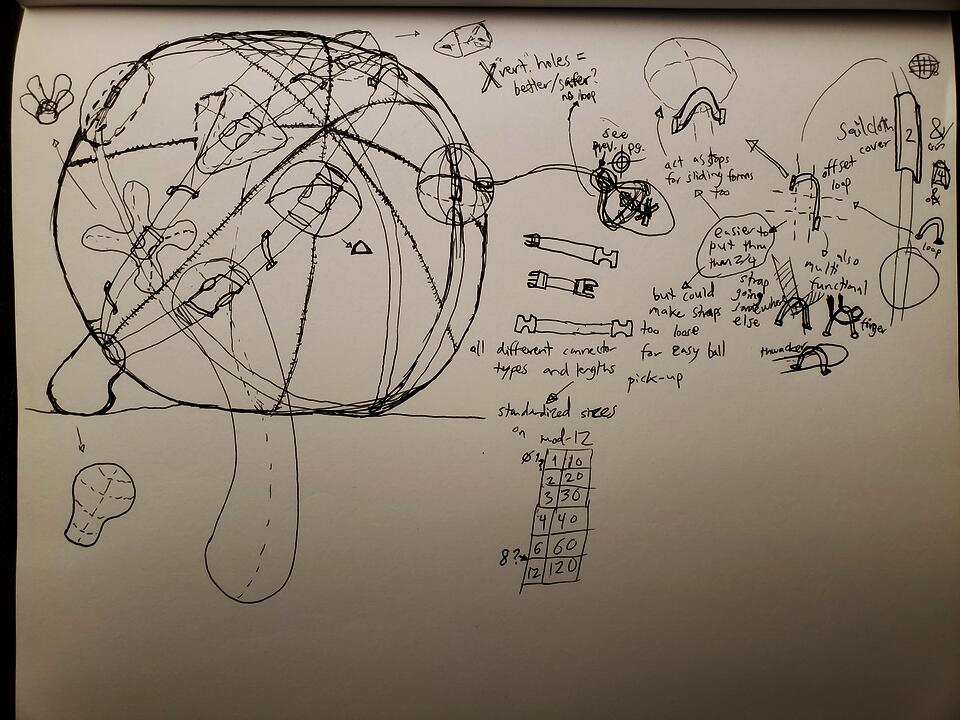 X "vert." holes =
better/safer?
no loop
see
prev. pg.
act as stops
for sliding forms
too
easier to
put thru
than 2/4
but could
make straps
too loose
for easy ball
pick-up
strap
going
somewhere
else
offset
loop
also
multi
functional
finger
thwacker
sailcloth
cover
2
&
4
&
loop
all different connector
types and lengths
standardized sizes
on mod-12
1 10
2 20
3 30
4 40
8? 6 60
12 120